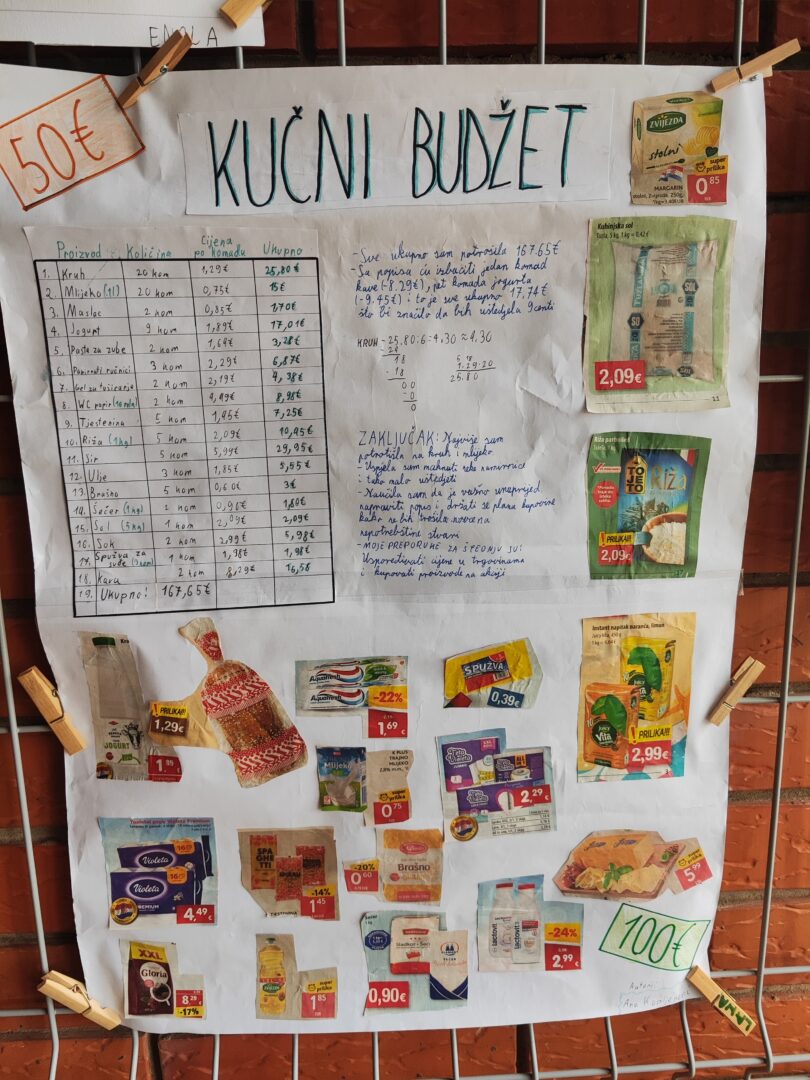 ENOLA
50€
KUČNI BUDŽET
Proizvod Količina Cijena po komadu Ukupno
1. Kruh 20 kom 1,29€ 25,80€
2. Mlijeko (1l) 20 kom 0,75€ 15€
3. Maslac 2 kom 0,85€ 1,70€
4. Jogurt 9 kom 1,89€ 17,01€
5. Pasta za zube 2 kom 1,64€ 3,28€
6. Papirnati ručnici 3 kom 2,29€ 6,87€
7. Gel za tuširanje 2 kom 2,19€ 4,38€
8. WC papir 2 kom 4,49€ 8,98€
9. Tjestenina 5 kom 1,45€ 7,25€
10. Riža (1kg) 5 kom 2,09€ 10,45€
11. Sir 5 kom 5,99€ 29,95€
12. Ulje 3 kom 1,85€ 5,55€
13. Brašno 5 kom 0,60€ 3€
14. Šećer (1kg) 2 kom 0,90€ 1,80€
15. Sol (5kg) 1 kom 2,09€ 2,09€
16. Sok 2 kom 2,99€ 5,98€
17. Spužva za suđe 1 kom 1,98€
18. Kava 2 kom 8,29€ 16,58
19. Ukupno! 167,65€
-Sve ukupno sam potrošila 167.65€
-Sa popisa ću izbaciti jedan komad
kave (-8.29€), pet komada jogurta
(-9.45€) i to je sve ukupno 17,74€
što bi značilo da bih uštedjela 9 centi
KRUH - 25,80:6=4,30 ≈ 4,30
18
-18
00
-0
0
1.29·20
25.80
ZAKLJUČAK: Najviše sam
potrošila na kruh i mlijeko
-Uspjela sam maknuti neke namirnice
i tako malo uštedjeti
-Naučila sam da je važno unaprijed
napraviti popis i držati se plana kupovine
kako ne bih trošila novce na
nepotrebštine stvari
-MOJE PREPORUKE ZA ŠTEDNJU SU:
Uspoređivati cijene u trgovinama
i kupovati proizvode na akciji
ZVIJEZDA
stolni
super prilika
MARGARIN
stolni, Zvijezda, 250g,
0 85
Kuhinjska sol
Tuzla, 5 kg, 1 kg = 0,42 €
SO
SOL
2,09€
11
TO JE TO
Riža
PRILIKA!!!
2,09€
JOGURT
1 89
PRILIKA!!!
1,29€
Aquafresh
Aquafresh
-22%
1 69
SPUŽVA
0,39€
Mlijeko
K PLUS
TRAJNO
MLIJEKO
2,8% m.m.,
0 75
Violeta
2 29
Instant napitak naranča, limun
JUICY
Vita
JUICY
Vita
PRILIKA!!!
2,99€
Toaletni papir Violeta Premium
Violeta
16
PREMIUM
4,49€
SPAGHETTI
-14%
1 45
TJESTENINA
-20%
0 60
Brašno
lactovit
lactovit
-24%
2 99
super prilika
5 99
XXL
Gloria
8 29
-17%
zvijezda
super prilika
1 85
0,90€
100€
Autor:
Ana
LANA